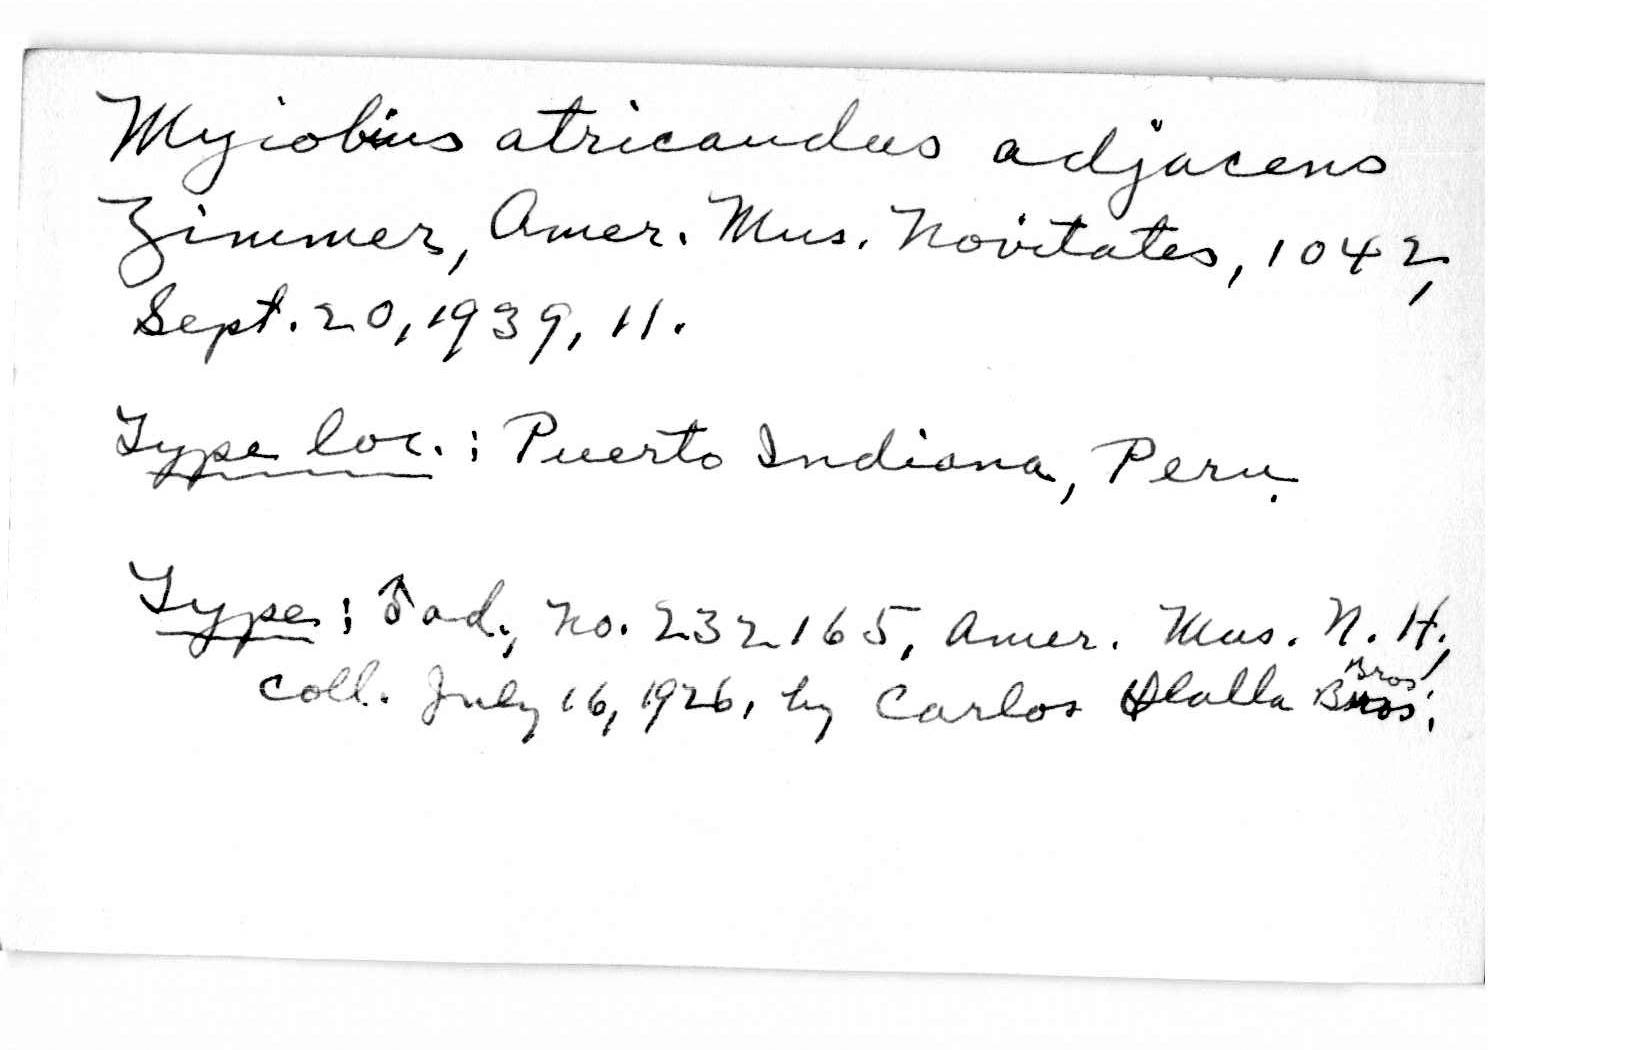 Myiobius atricaudus adjacens
Zimmer, Amer. Mus. Novitates, 1042,
Sept. 20, 1939, 11.
Type loc.: Puerto Indiana, Peru.
Type: ♂ ad., no. 232165, Amer. Mus. N. H.,
coll. July 16, 1926, by Carlos Olalla Bros.